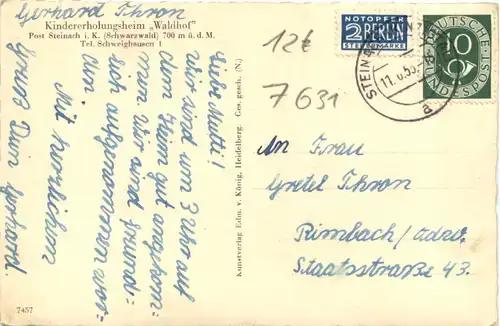 Gerhard Thron
Kindererholungsheim „Waldhof"
Post Steinach i. K. (Schwarzwald) 700 m ü. d. M.
Tel. Schweighausen 1
Liebe Mutti!
Wir sind um 3 Uhr auf
dem Heim gut angekom-
men. Wir sind freund-
lich aufgenommen wor-
den.
Mit herzlichem
Gruß Dein Gerhard
7457
Kunstverlag Edm. v. König, Heidelberg. Ges. gesch. (N.)
12€
7631
NOTOPFER
2 BERLIN
STEUERMARKE
STEINACH
11.6.53
a
DEUTSCHE
BUNDESPOST
10
An Frau
Gretel Thron
Rimbach/Odw.
Staatsstraße 43.